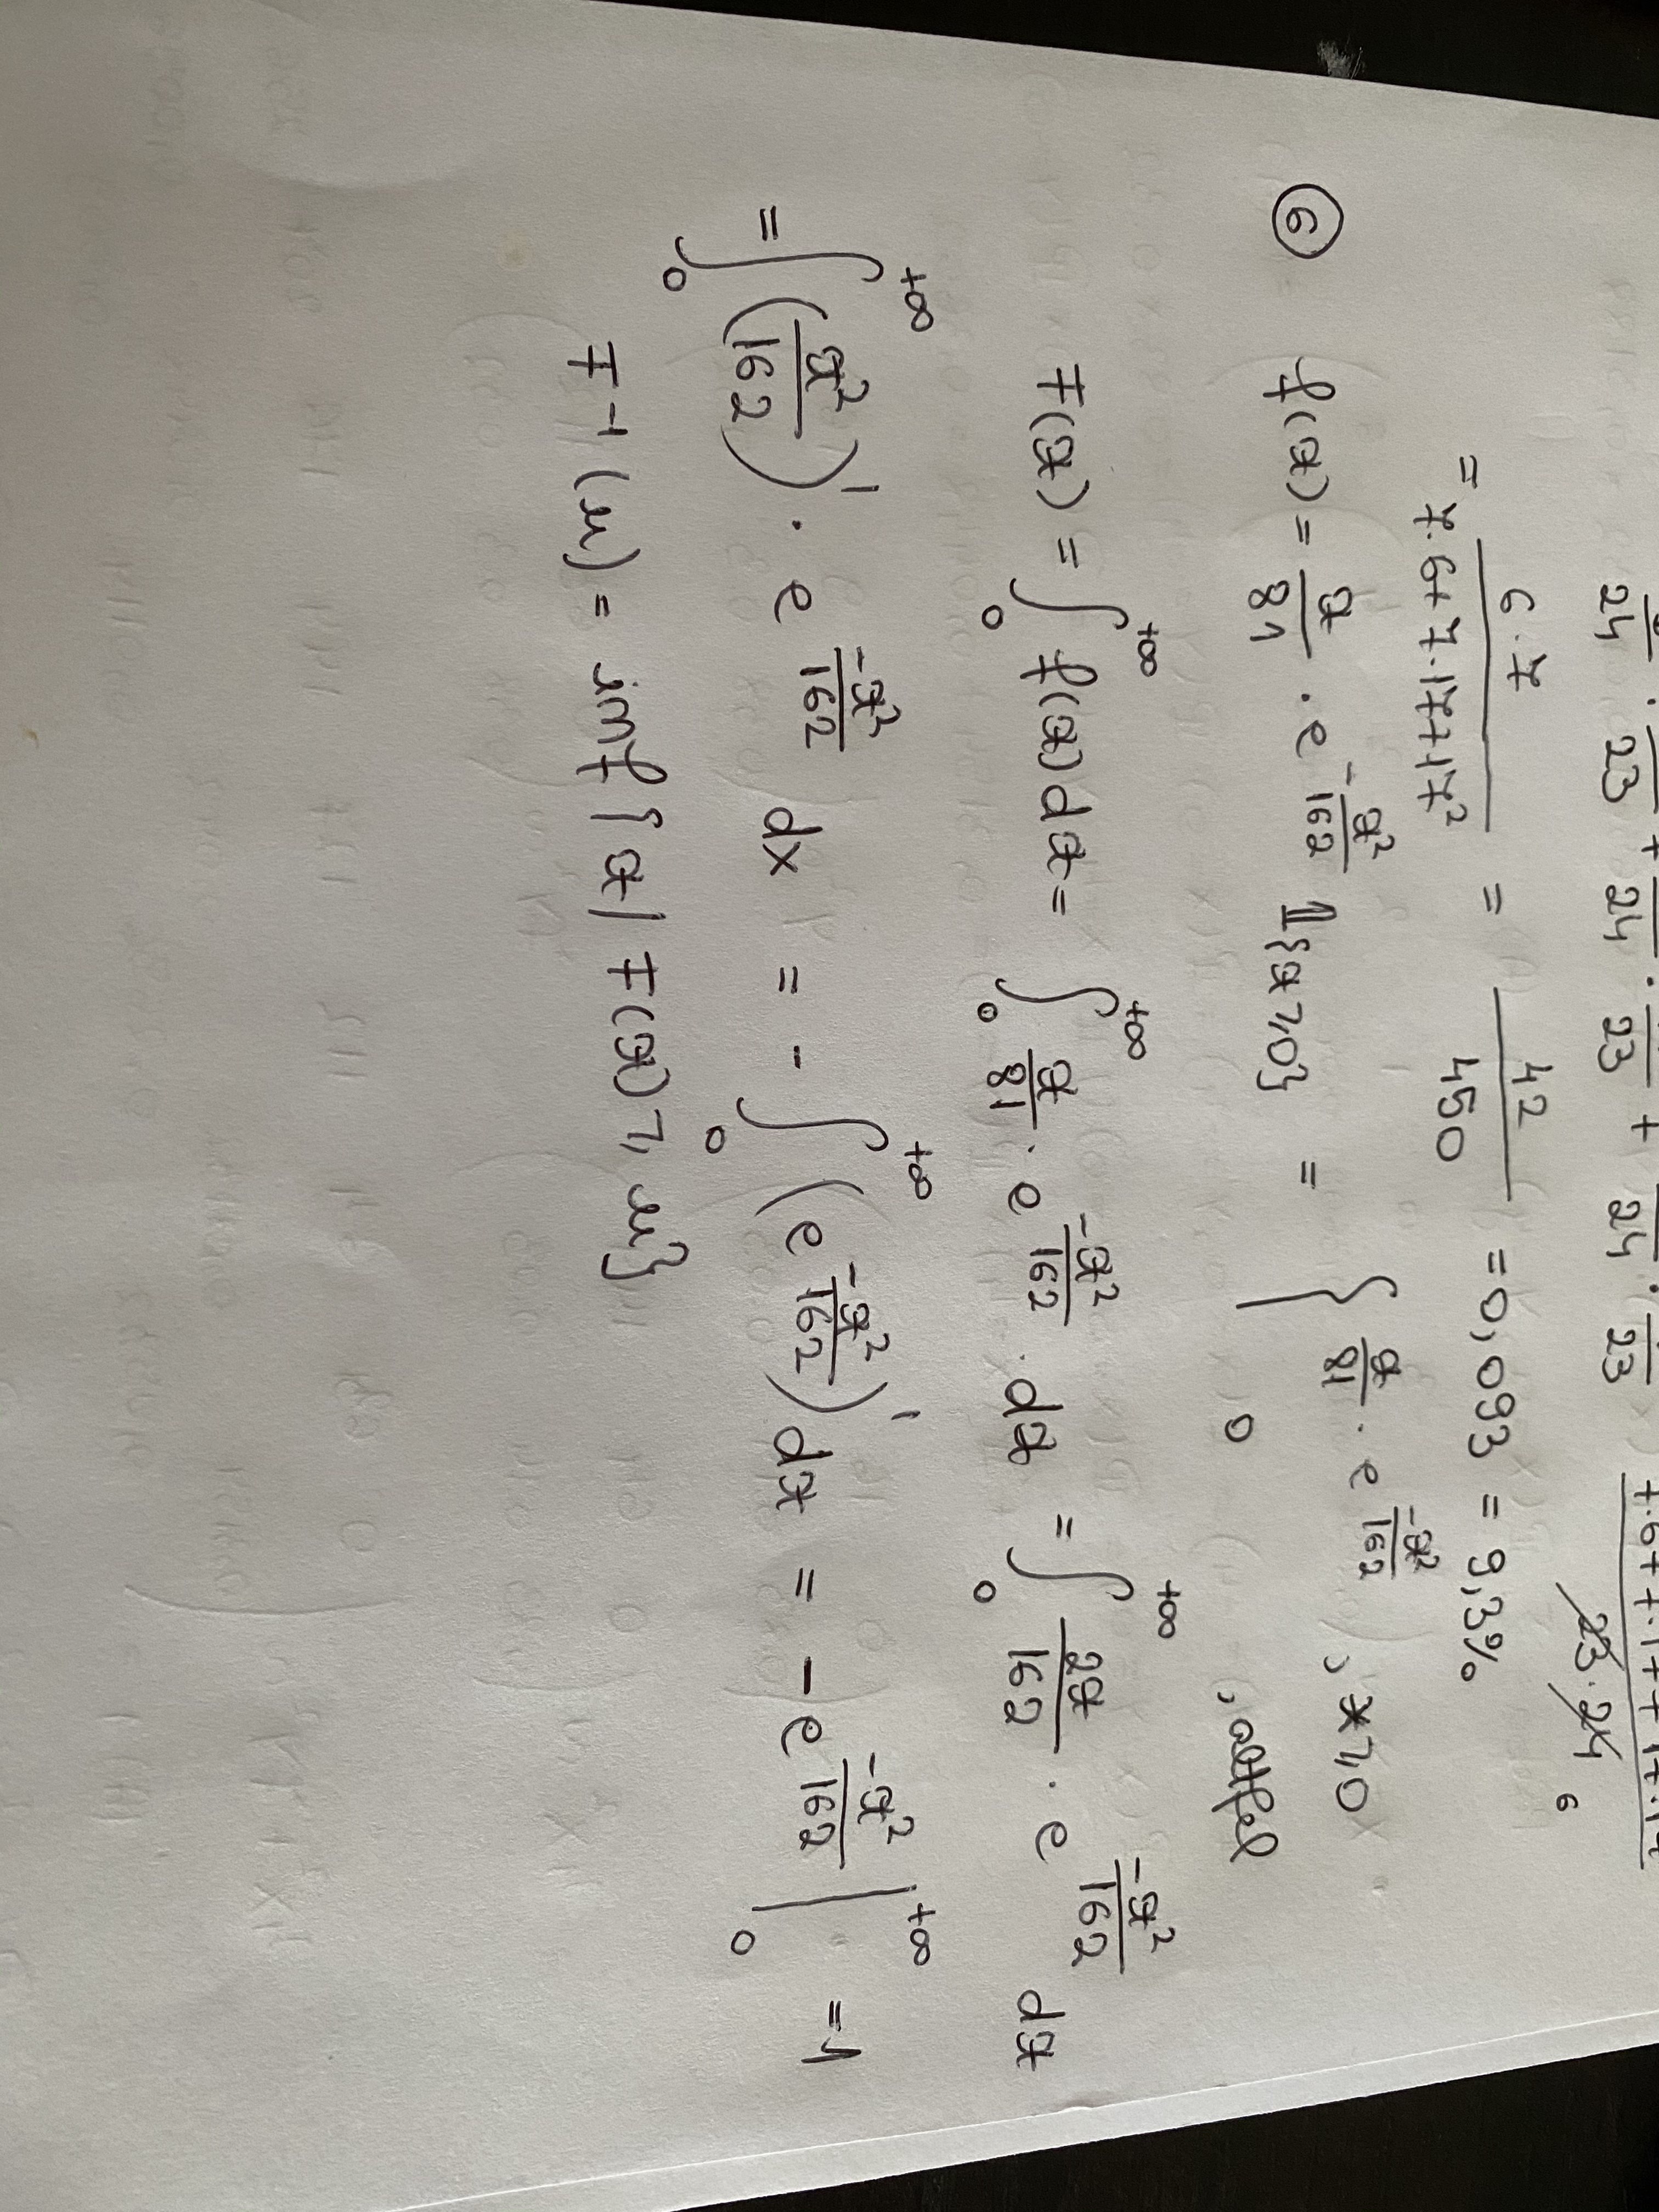 /24 · /23 + /24 · /23 + /24 · /23 7·6+7·17+17·17 / 23·24 6
= 6·7 / 7·6+7·17+17² = 42/450 = 0,093 = 9,3%
⑥ f(x) = x/81 · e^(-x²/162) 𝟙{x⩾0} = { x/81 · e^(-x²/162) , x⩾0
0 , altfel
F(x) = ∫₀^(+∞) f(x)dx = ∫₀^(+∞) x/81 · e^(-x²/162) · dx = ∫₀^(+∞) 2x/162 · e^(-x²/162) dx
= ∫₀^(+∞) (x²/162)' · e^(-x²/162) dx = - ∫₀^(+∞) (e^(-x²/162))' dx = -e^(-x²/162) |₀^(+∞) = 1
F⁻¹(u) = inf{x | F(x) ⩾ u}